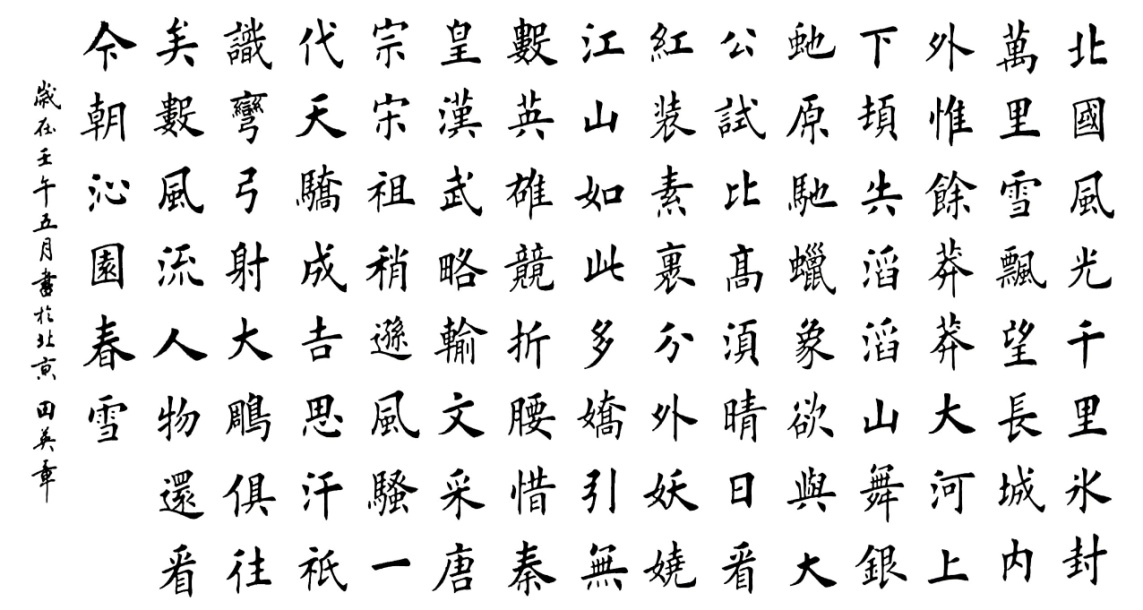 北國風光千里氷封
萬里雪飄望長城内
外惟餘莽莽大河上
下頓失滔滔山舞銀
虵原馳蠟象欲與大
公試比髙須晴日看
紅装素裹分外妖嬈
江山如此多嬌引無
數英雄競折腰惜秦
皇漢武略輸文采唐
宗宋祖稍遜風騷一
代天驕成吉思汗祇
識彎弓射大鵰俱往
矣數風流人物還看
今朝沁園春雪
歲在壬午五月書於北京田英章